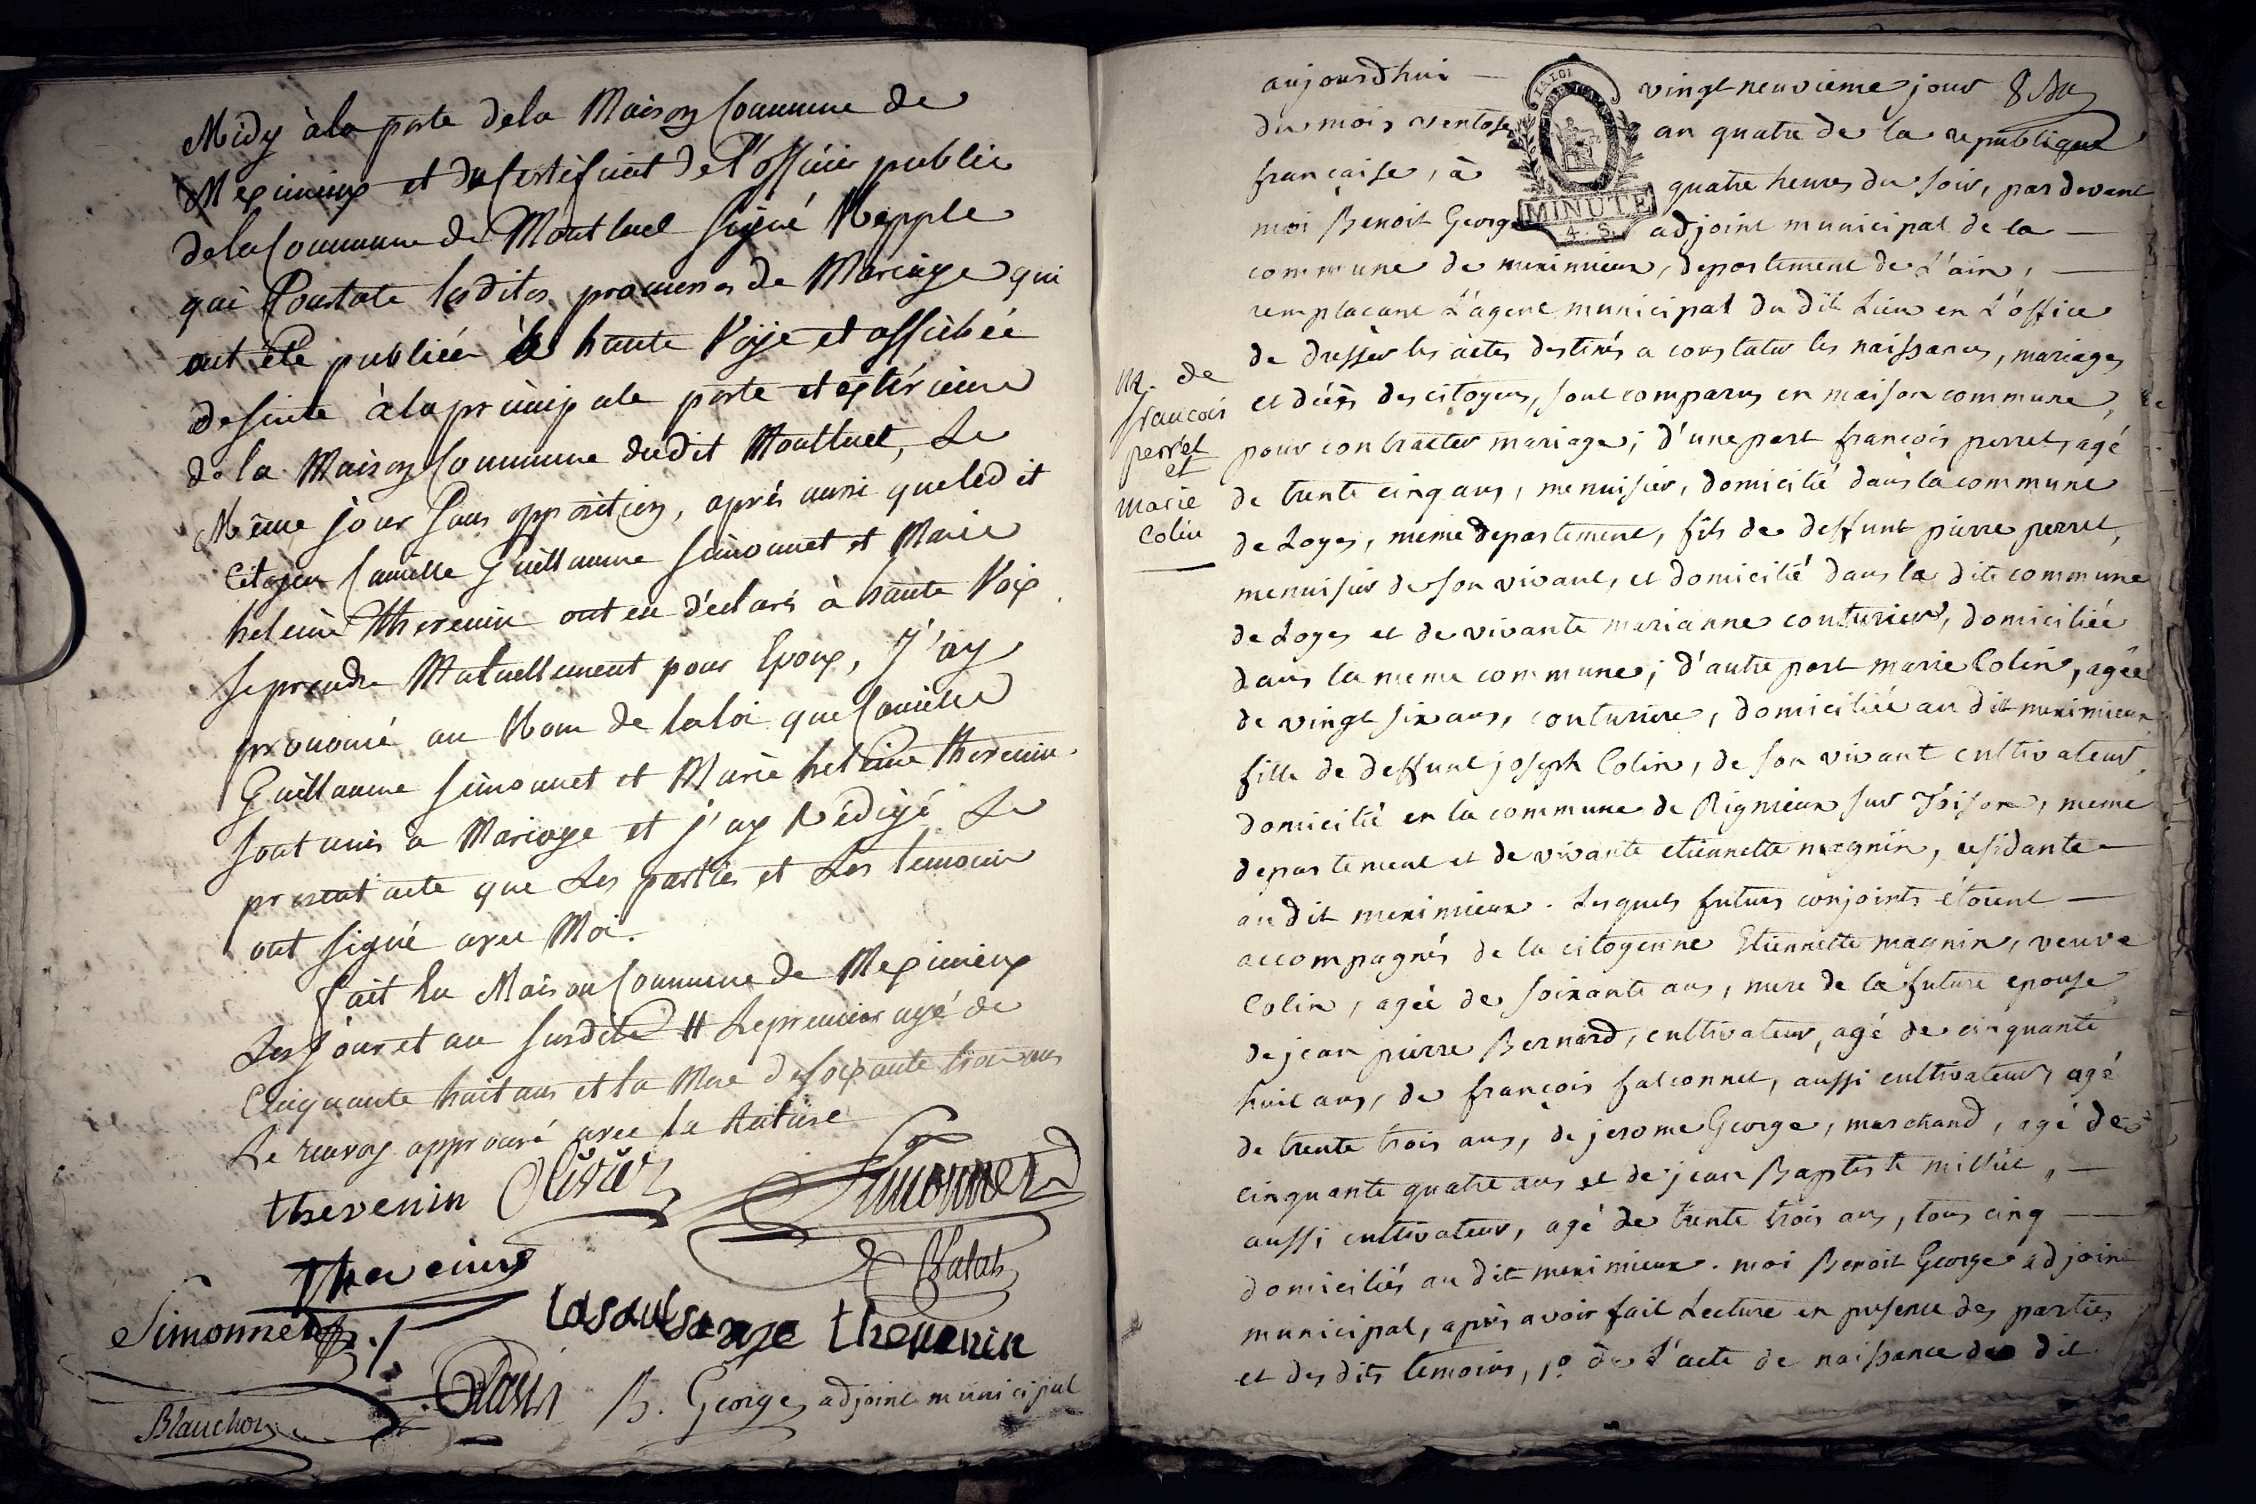 Midy à la porte de la Maison Commune de
Meximieux et du Certificat de l'officier public
de la Commune de Montluel signé Nepple
qui Constate lesdites promesses de Mariage qui
ont été publiée à haute Voye et affichée
de suite à la principale porte et extérieure
de la Maison Commune dudit Montluel, Le
Même jour sans opposition, après aussi que ledit
Citoyen Camille Guillaume Simonnet et Marie
heleine Thevenin ont eu déclaré à haute Voix
se prendre Mutuellement pour Epoux, J'ay
prononcé au Nom de la loi que Camille
Guillaume Simonnet et Marie heleine thevenin
sont unis en Mariage et j'ay Rédigé Le
present acte que Les parties et Les temoins
ont signé avec Moi.
fait En Maison Commune de Meximieux
Les jour et an susdits # Le premier agé de
Cinquante huit ans et la Mere de soixante trois ans
Le renvoy approuvé avec la
thevenin Olivier Simonnet
Thevenin
Simonnet lasausange thevenin
Blanchon B. George adjoint municipal
aujourdhui vingt neuvieme jour
du mois ventose an quatre de la republique
française, à quatre heures du soir, par devant
moi Benoit George adjoint municipal de la
LA LOI
MINUTE
4. S.
commune de meximieux, departement de L'ain,
remplacant L'agent municipal du dit Lieu en L'office
de dresser les actes destinés a constater les naissances, mariages
et décès des citoyens, sont comparus en maison commune,
m. de
francois
perret
et
marie
Colin
pour contracter mariage; d'une part françois perret, agé
de trente cinq ans, menuisier, domicilié dans la commune
de Loyes, meme departement, fils de deffunt pierre perret,
menuisier de son vivant, et domicilié dans la dite commune
de Loyes et de vivante marianne couturier, domiciliée
dans la meme commune; d'autre part marie Colin, agée
de vingt six ans, couturiere, domiciliée au dit meximieux,
fille de deffunt joseph Colin, de son vivant cultivateur,
domicilié en la commune de Rignieux sur Toison, meme
departement et de vivante etiennette magnin, residante
au dit meximieux. Lesquels futurs conjoints étoient
accompagnés de la citoyenne Etiennette magnin, veuve
Colin, agée de soixante ans, mere de la future epouse
de jean pierre Bernard, cultivateur, agé de cinquante
huit ans, de françois falconnet, aussi cultivateur, agé
de trente trois ans, de jerome George, marchand, agé de
cinquante quatre ans et de jean Baptiste milliet,
aussi cultivateur, agé de trente trois ans, tous cinq
domiciliés au dit meximieux. moi Benoit George adjoint
municipal, après avoir fait Lecture en presence des parties
et des dits temoins, 1º de L'acte de naissance du dit